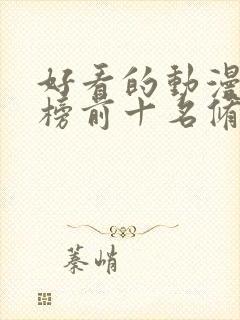 好看的動漫
榜前十名脩
蓁峭